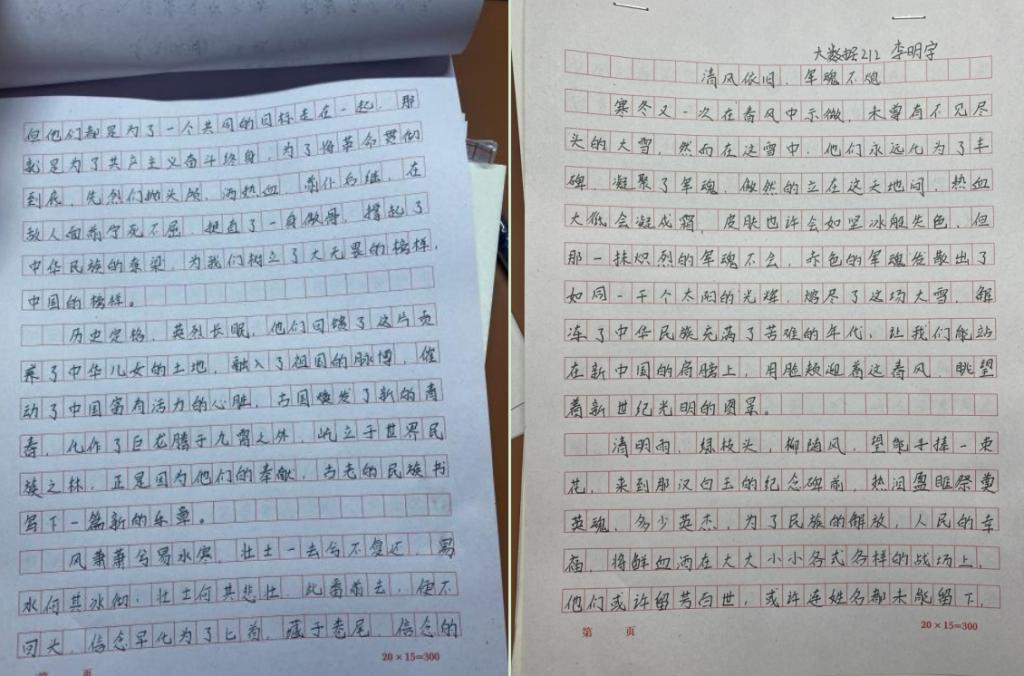 但他们都是为了一个共同的目标走在一起，那
就是为了共产主义奋斗终身，为了将革命贯彻
到底，先烈们抛头颅，洒热血，前仆后继，在
敌人面前宁死不屈，挺直了一身傲骨，撑起了
中华民族的脊梁，为我们树立了大无畏的榜样，
中国的榜样。
历史定格，英烈长眠，他们回馈了这片贡
养了中华儿女的土地，融入了祖国的脉博，催
动了中国富有活力的心脏，古国焕发了新的青
春，化作了巨龙腾于九霄之外，屹立于世界民
族之林，正是因为他们的奉献，古老的民族书
写下一篇新的乐章。
风萧萧兮易水寒，壮士一去兮不复还，易
水何其冰彻，壮士何其悲壮，此番前去，便不
回头，信念早化为了匕首，藏于卷尾，信念的
第 页
20×15=300
大数据212 李明宇
清风依旧，军魂不熄
寒冬又一次在春风中示微，未曾有不见尽
头的大雪，然而在这雪中，他们永远化为了丰
碑，凝聚了军魂，傲然的立在这天地间，热血
大低会凝成霜，皮肤也许会如坚冰般失色，但
那一抹炽烈的军魂不会，赤色的军魂发散出了
如同一千个太阳的光辉，熔尽了这场大雪，解
冻了中华民族充满了苦难的年代，让我们能站
在新中国的肩膀上，用脸颊迎着这春风，眺望
着新世纪光明的图景。
清明雨，绿枝头，柳随风，望能手捧一束
花，来到那汉白玉的纪念碑前，热泪盈眶祭奠
英魂，多少英杰，为了民族的解放，人民的幸
福，将鲜血洒在大大小小各式各样的战场上，
他们或许留芳百世，或许连姓名都未能留下，
第 页
20×15=300